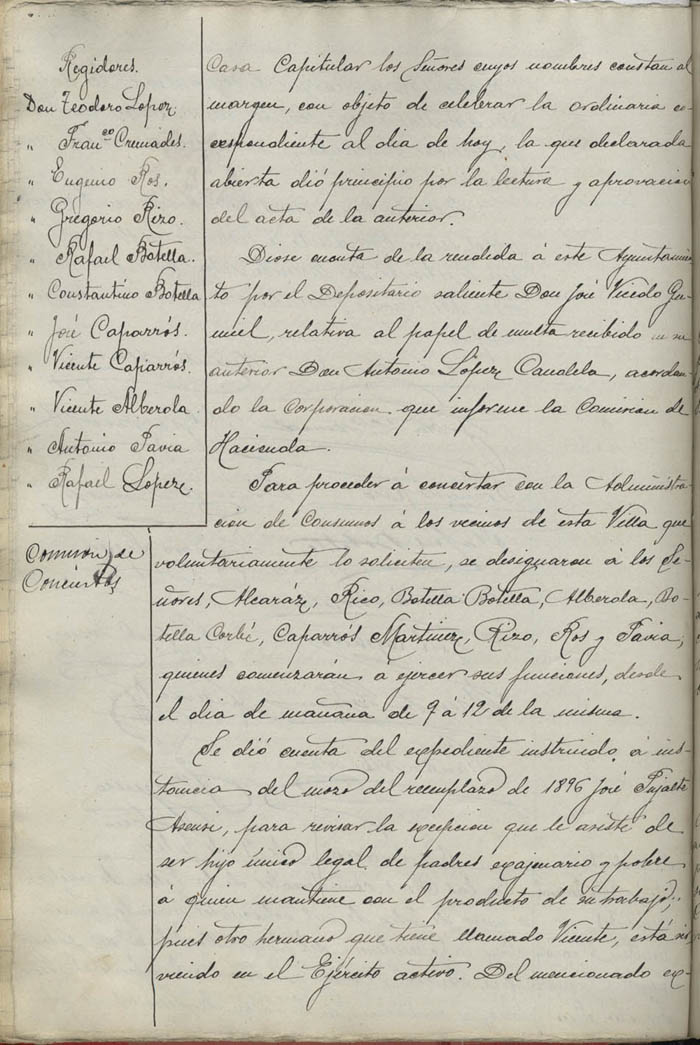 Regidores.
Don Teodoro Lopez.
" Fran.co Cremades.
" Eugenio Ros.
" Gregorio Rizo.
" Rafael Botella.
" Constantino Botella
" José Caparrós.
" Vicente Caparrós.
" Vicente Alberola.
" Antonio Pavia
" Rafael Lopez.
Comisión de
Conciertos
Casa Capitular los Señores cuyos nombres constan al
margen, con objeto de celebrar la ordinaria co-
respondiente al dia de hoy, la que declarada
abierta dió principio por la lectura y aprovacion
del acta de la anterior.
Diose cuenta de la rendida á este Ayuntamien
to por el Depositario saliente Don José Vicedo Gu-
miel, relativa al papel de multa recibido su
anterior Don Antonio López Candela, acordan-
do la Corporacion que informe la Comision de
Hacienda.
Para proceder á concertar con la Administra-
cion de Consumos á los vecinos de esta Villa que
voluntariamente lo soliciten, se designaron á los Se-
ñores, Alcaráz, Rico, Botella Botella, Alberola, Bo-
tella Corbí, Caparrós Martinez, Rizo, Ros y Pavia,
quienes comenzarán á ejercer sus funciones, desde
el dia de mañana de 9 á 12 de la misma.
Se dió cuenta del expediente instruido á ins-
tancia del mozo del reemplazo de 1896 José Pujalte
Asensi, para revisar la excepcion que le asiste de
ser hijo único legal de padres sexajenario y pobre
á quien mantiene con el producto de su trabajo;
pues otro hermano que tiene llamado Vicente, está sir
viendo en el Ejército activo. Del mencionado ex-